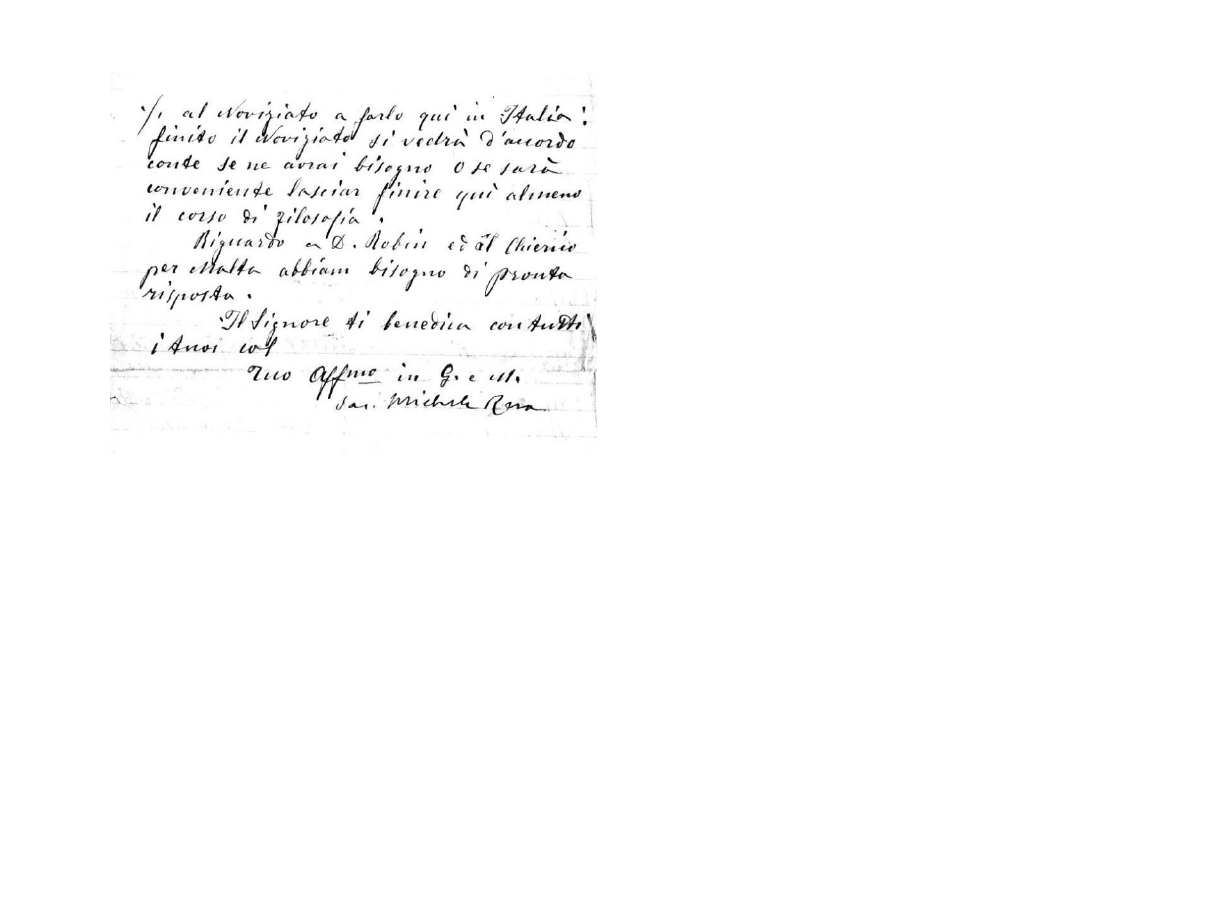 ./. al Noviziato a farlo qui in Italia:
finito il Noviziato si vedrà d'accordo
conte se ne avrai bisogno o se sarà
conveniente lasciar finire qui almeno
il corso di filosofia.
Riguardo a D. Robin ed al Chierico
per Malta abbiam bisogno di pronta
risposta.
Il Signore ti benedica con tutti
i tuoi col
Tuo Aff.mo in G. e M.
Sac. Michele Rua